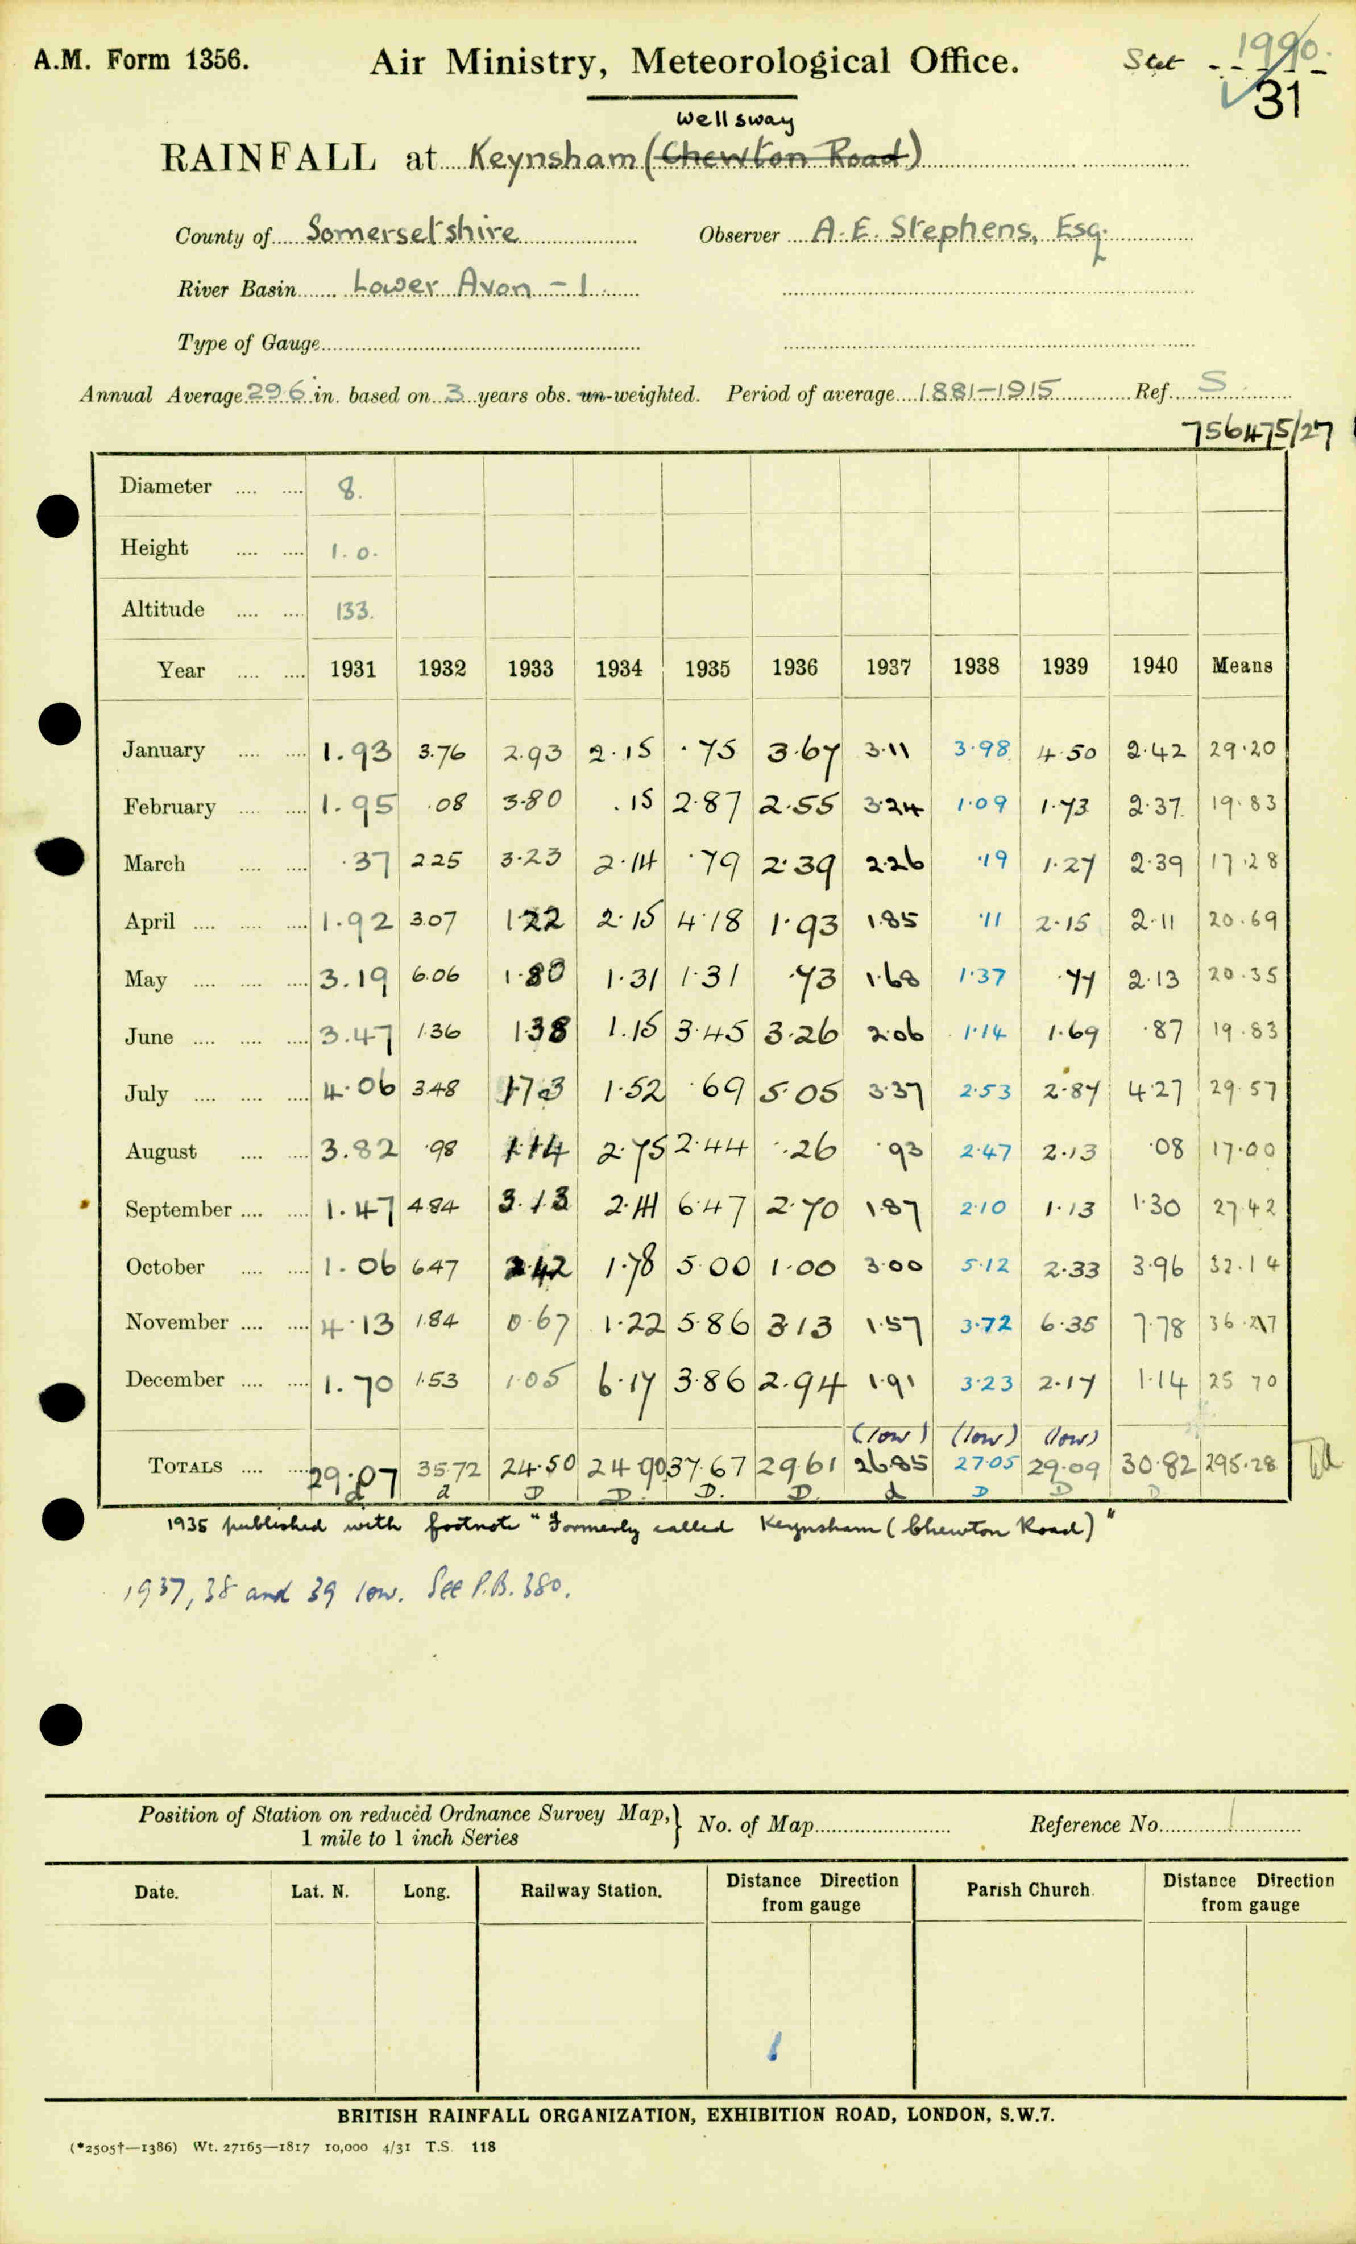 A.M. Form 1356. Air Ministry, Meteorological Office. Stat 1990.
31
Wellsway
RAINFALL at Keynsham (Chewton Road)
County of Somersetshire Observer A. E. Stephens, Esq.
River Basin Lower Avon - 1
Type of Gauge
Annual Average 29.6 in. based on 3 years obs. un-weighted. Period of average 1881-1915 Ref. S
756475/27
Diameter 8.
Height 1.0.
Altitude 133.
Year 1931 1932 1933 1934 1935 1936 1937 1938 1939 1940 Means
January 1.93 3.76 2.93 2.15 .75 3.67 3.11 3.98 4.50 2.42 29.20
February 1.95 .08 3.80 .15 2.87 2.55 3.24 1.09 1.73 2.37 19.83
March .37 2.25 3.23 2.14 .79 2.39 2.26 .19 1.27 2.39 17.28
April 1.92 3.07 1.22 2.15 4.18 1.93 1.85 .11 2.15 2.11 20.69
May 3.19 6.06 1.80 1.31 1.31 .73 1.68 1.37 .77 2.13 20.35
June 3.47 1.36 1.38 1.15 3.45 3.26 2.06 1.14 1.69 .87 19.83
July 4.06 3.48 1.73 1.52 .69 5.05 3.37 2.53 2.87 4.27 29.57
August 3.82 .98 1.14 2.75 2.44 .26 .93 2.47 2.13 .08 17.00
September 1.47 4.84 3.13 2.41 6.47 2.70 1.87 2.10 1.13 1.30 27.42
October 1.06 6.47 2.42 1.78 5.00 1.00 3.00 5.12 2.33 3.96 32.14
November 4.13 1.84 0.67 1.22 5.86 3.13 1.57 3.72 6.35 7.78 36.27
December 1.70 1.53 1.05 6.17 3.86 2.94 1.91 3.23 2.17 1.14 25 70
(low) (low) (low)
TOTALS 29.07 35.72 24.50 24.90 37.67 29.61 26.85 27.05 29.09 30.82 295.28
d d D D. D. D. d D D D
1935 published with footnote "Formerly called Keynsham (Chewton Road)"
1937, 38 and 39 low. See P.B. 380.
Position of Station on reduced Ordnance Survey Map, } No. of Map Reference No.
1 mile to 1 inch Series
Date. Lat. N. Long. Railway Station. Distance Direction Parish Church. Distance Direction
from gauge from gauge
BRITISH RAINFALL ORGANIZATION, EXHIBITION ROAD, LONDON, S.W.7.
(*2505†—1386) Wt. 27165—1817 10,000 4/31 T.S. 118